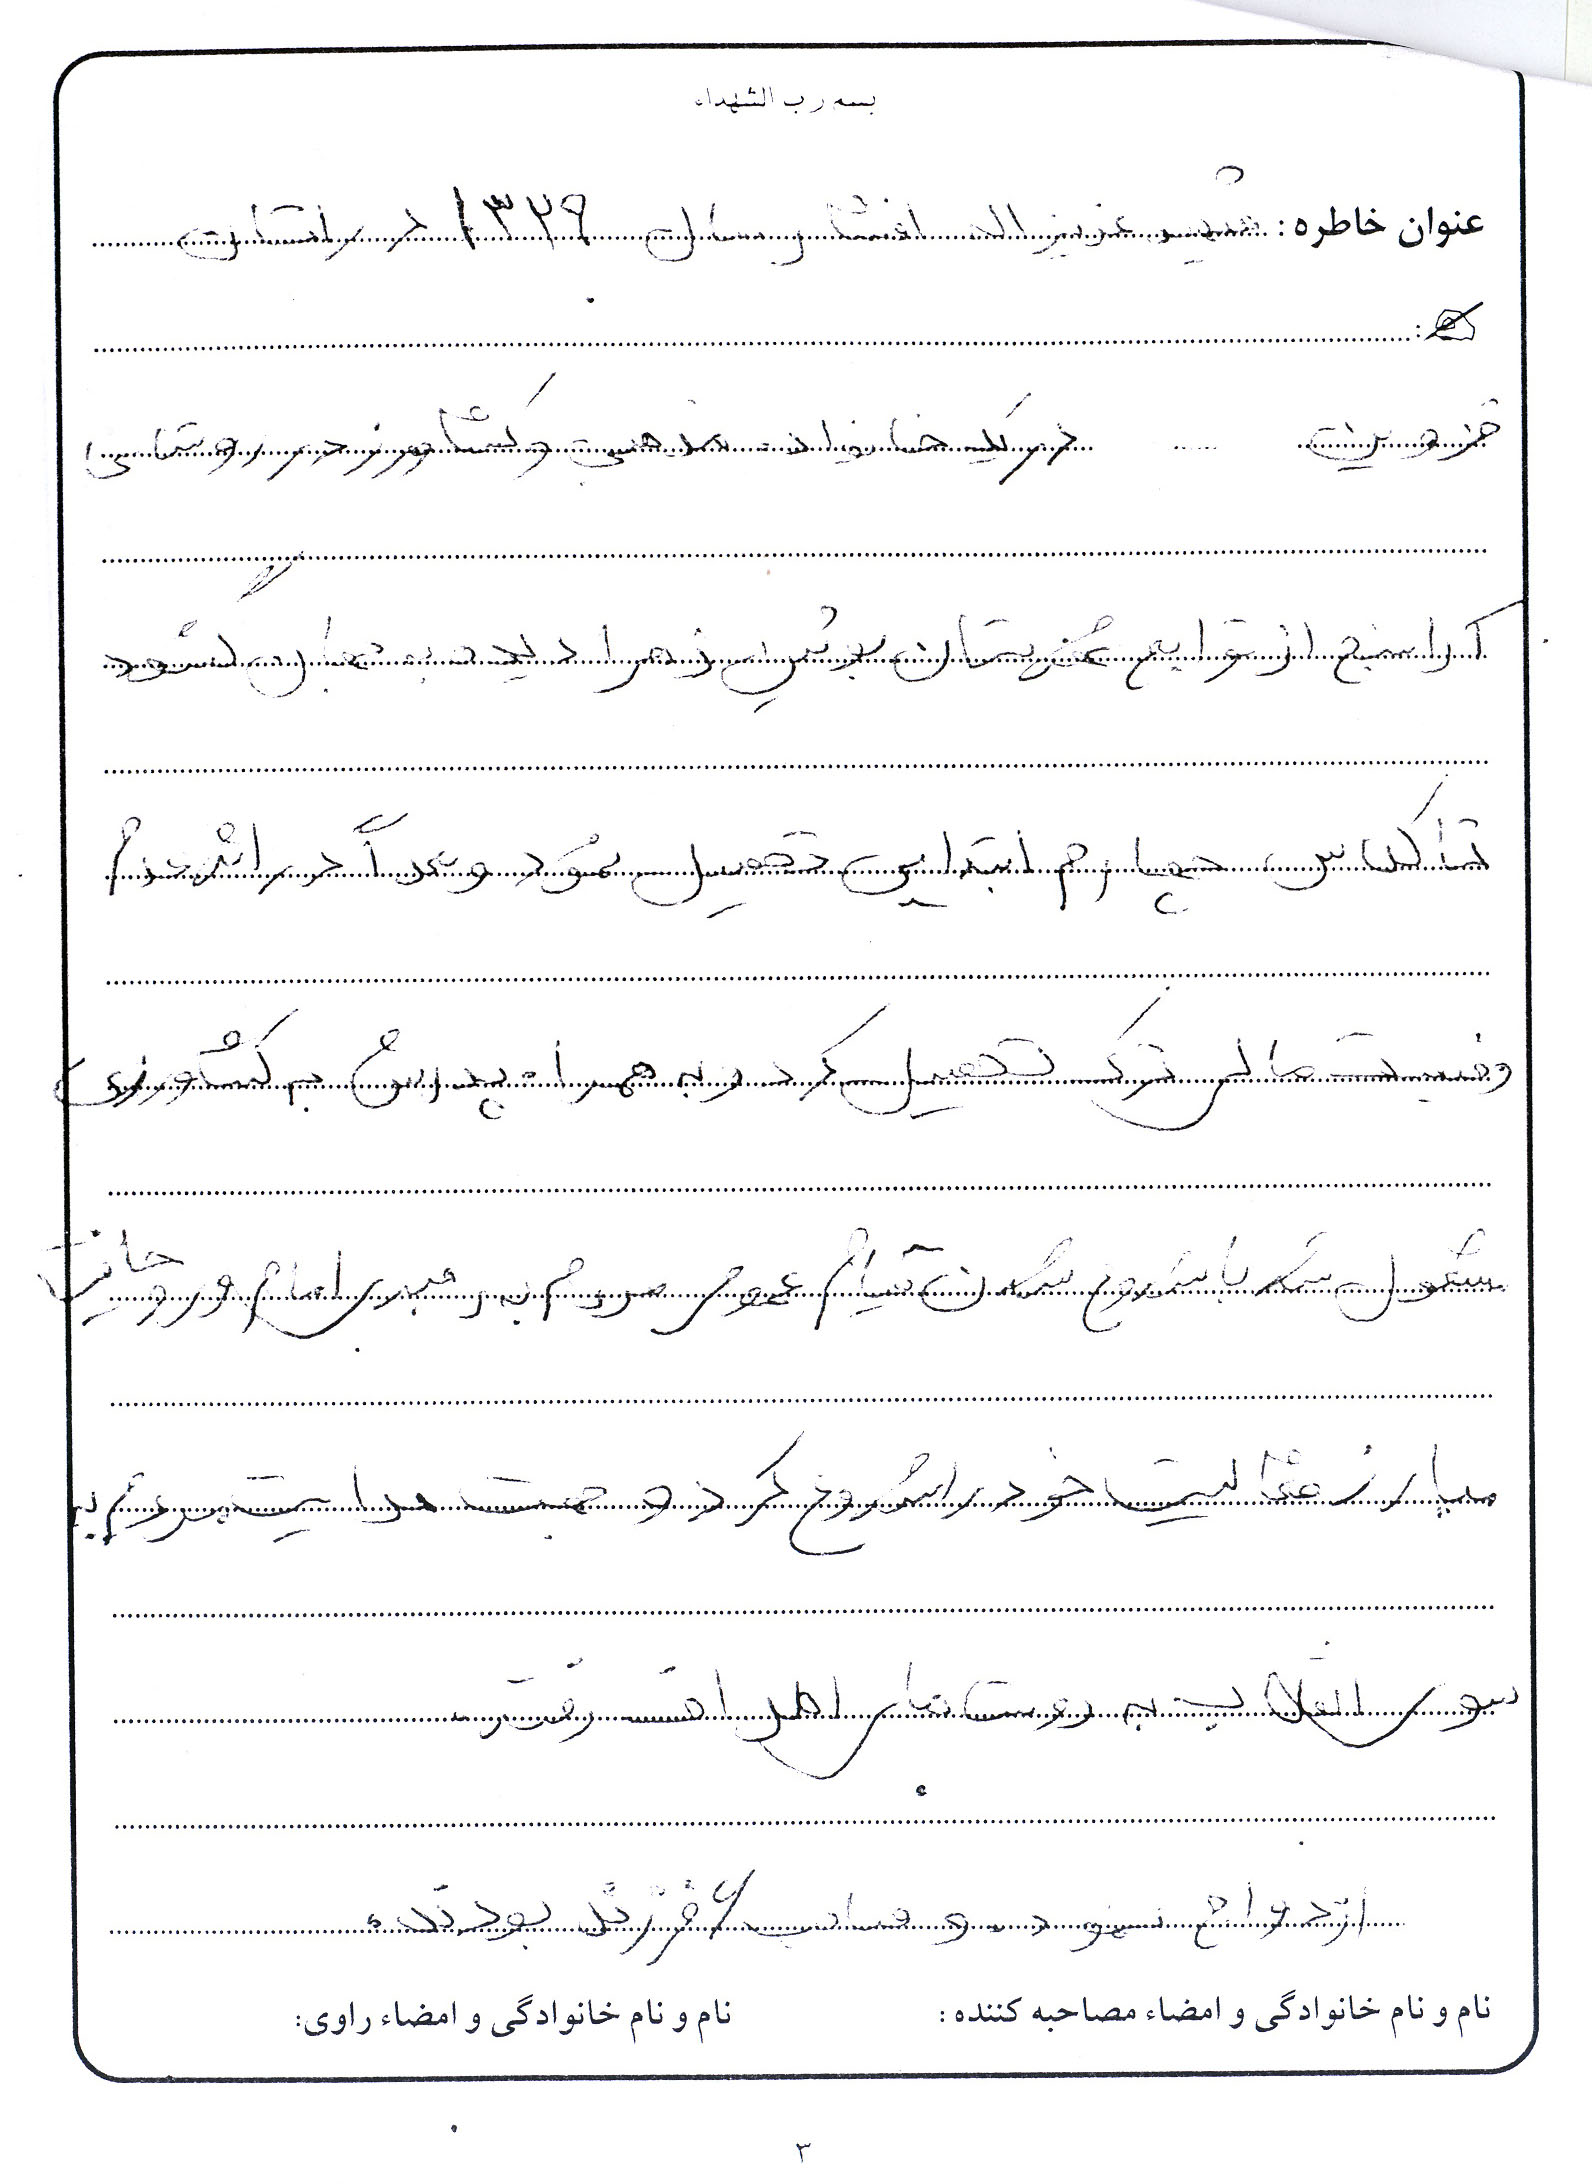 بسم رب الشهداء
عنوان خاطره: شهید عزیز اله افشار سال ۱۳۲۹ در استان
قزوین در یک خانواده مذهبی و کشاورز در روستای
آراسنج از توابع شهرستان بوئین زهرا دیده به جهان گشود
تا کلاس چهارم ابتدایی تحصیل نمود و بعداً در اثر عدم
وضیت مالی ترک تحصیل کرد و به همراه پدرش به کشاورزی
مشغول شد با شروع شدن قیام عمومی مردم به رهبری امام و روحانیت
مبارز فعالیت خود را شروع کرد و جهت هدایت مردم به
سوی انقلاب به روستاهای اطراف رفتند
ازدواج نمود و صاحب ۶ فرزند بودند
نام و نام خانوادگی و امضاء مصاحبه کننده: نام و نام خانوادگی و امضاء راوی:
۳